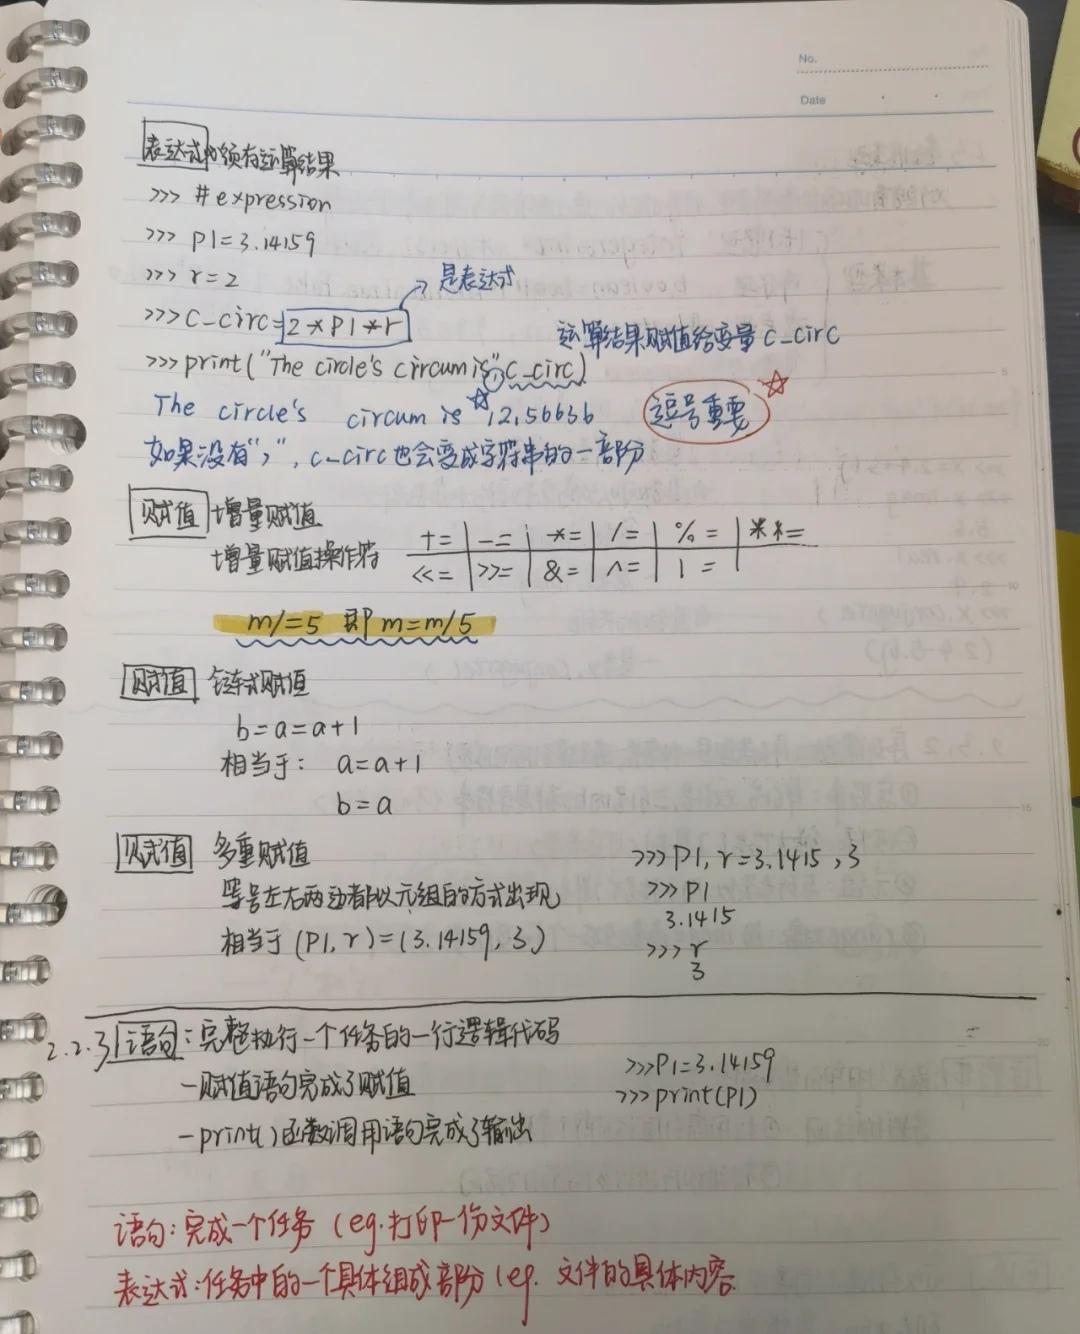 No.
Date
表达式必须有运算结果
>>> #expression
>>> PI=3.14159
>>> r=2
是表达式
>>>c_circ=2*PI*r
运算结果赋值给变量c_circ
>>>print("The circle's circum is",c_circ)
The circle's circum is 12.56636
逗号重要
如果没有",",c_circ也会变成字符串的一部分
赋值 增量赋值
增量赋值操作符
+= | -= | *= | /= | %= | **=
<<= | >>= | &= | ^= | |=
m/=5 即 m=m/5
赋值 链式赋值
b=a=a+1
相当于: a=a+1
b=a
赋值 多重赋值
等号左右两边都以元组的方式出现
相当于(PI,r)=(3.14159,3)
>>>PI,r=3.1415,3
>>>PI
3.1415
>>>r
3
2.2.3 语句:完整执行一个任务的一行逻辑代码
-赋值语句完成了赋值
-print()函数调用语句完成了输出
>>>PI=3.14159
>>>print(PI)
语句:完成一个任务(eg.打印一份文件)
表达式:任务中的一个具体组成部分(eg. 文件的具体内容